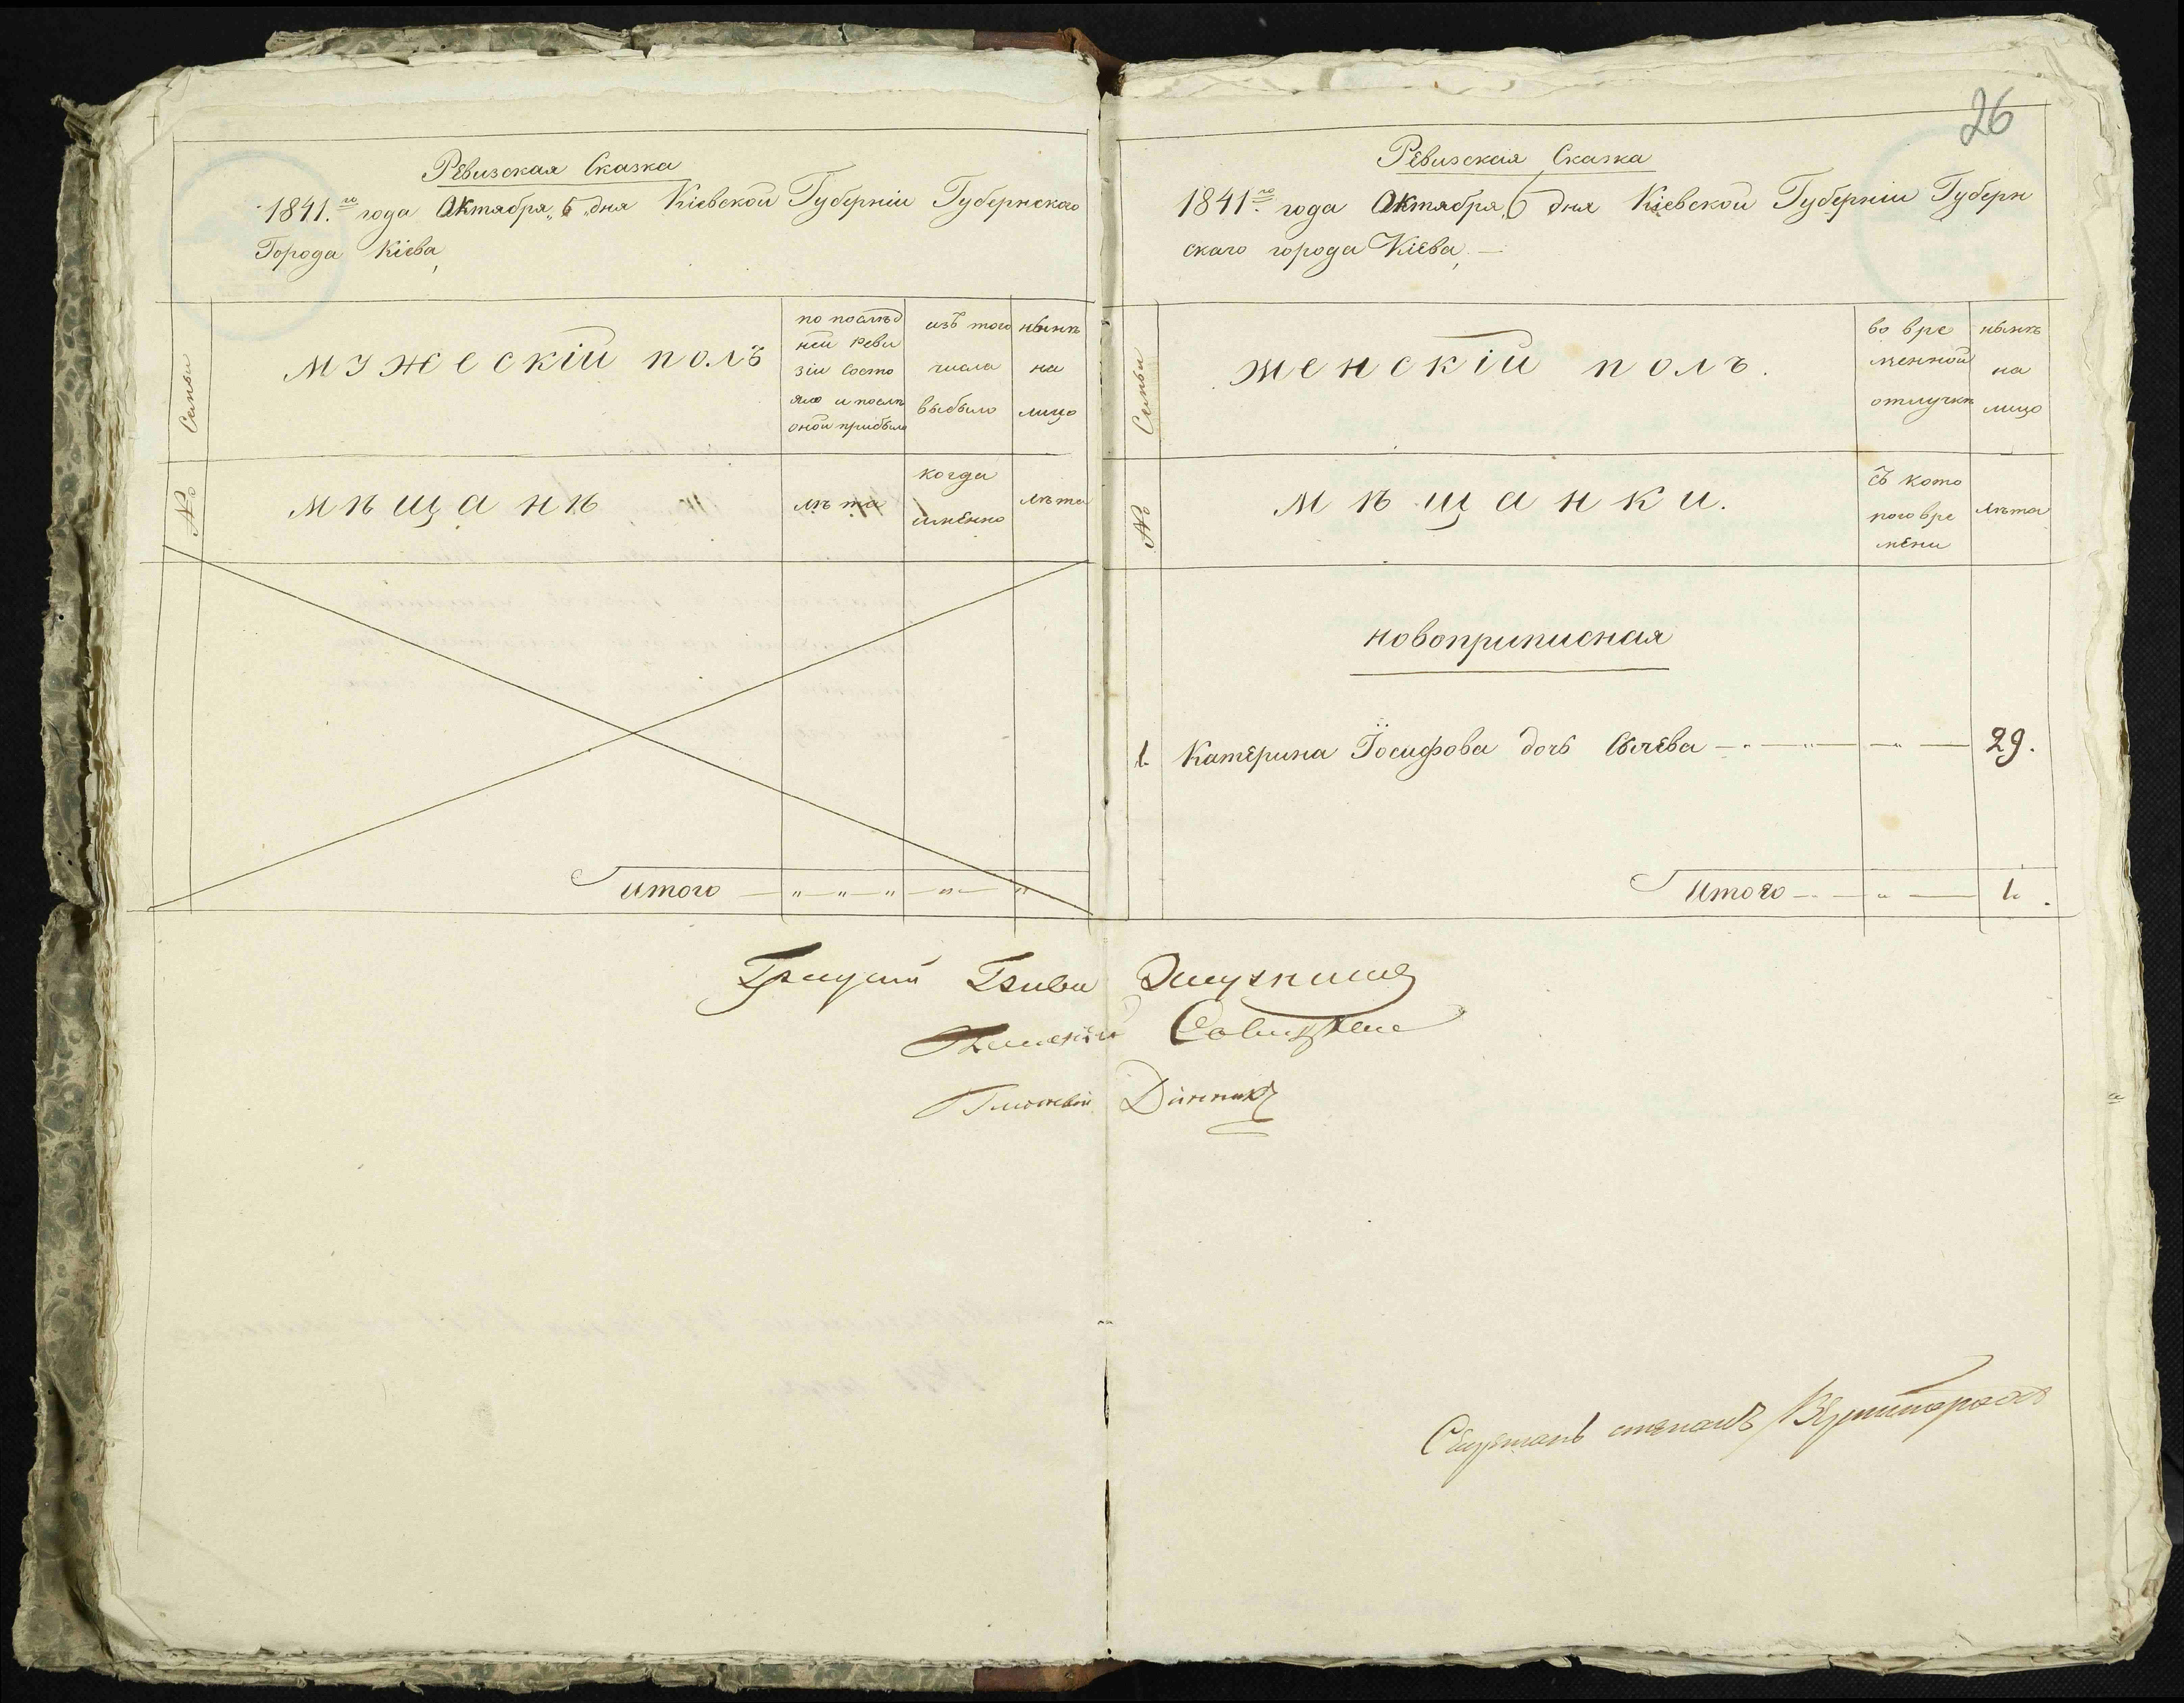 26
Ревизская Сказка
1841.го года Октября „6„ дня Кіевской Губерніи Губернскаго
Города Кіева,
№ Семьи
мужескій полъ
по послѣд
ней реви
зіи состо
яло и послѣ
оной прибыло
изъ того
числа
выбыло
нынѣ
на
лицо
мѣщанѣ
лѣта
когда
имѣнно
лѣта
итого — „ — „ — „ — „ — „
Ревизская Сказка
1841.го года Октября 6 дня Кіевской Губерніи Губерн
скаго города Кіева. —
№ Семьи
женскій полъ.
во вре
менной
отлучкѣ
нынѣ
на
лицо
мѣщанки.
съ кото
раго вре
мени
лѣта
новоприписная
1. Катерина Іосифова дочь — „ — „ — „ — 29.
Итого — „ — 1.